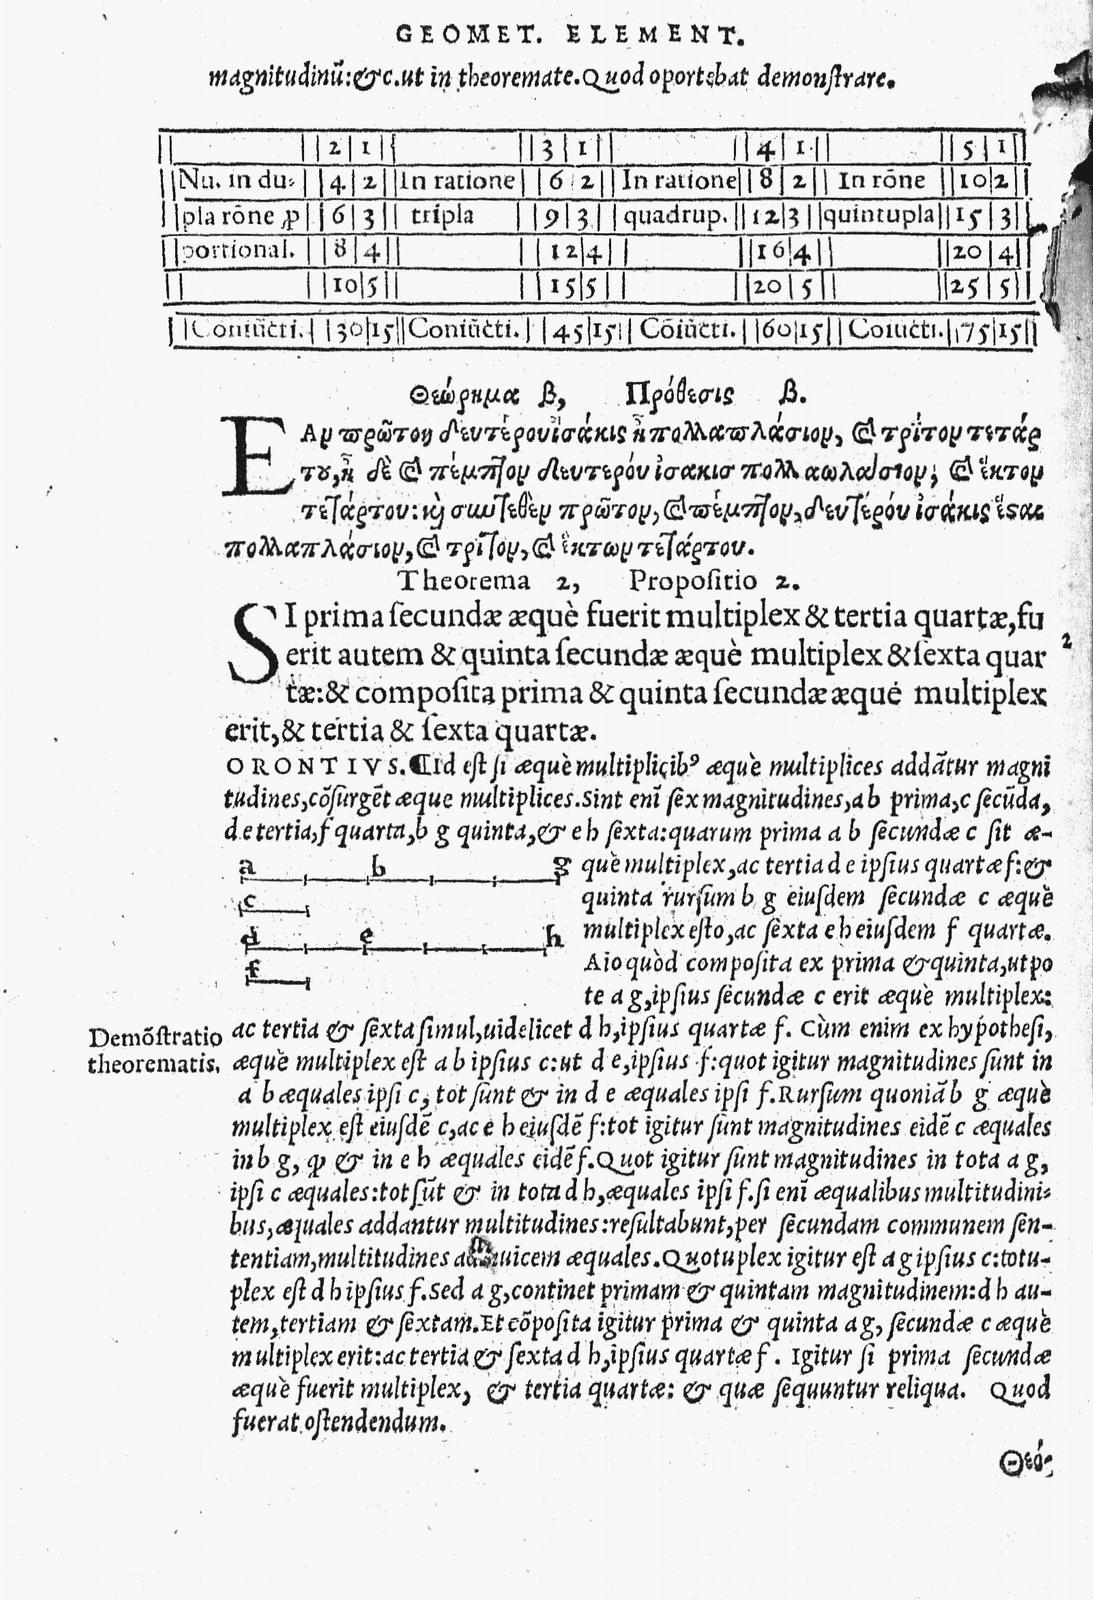 GEOMET. ELEMENT.
magnitudinũ:&c.ut in theoremate.Quod oportebat demonſtrare.
2 | 1 | 3 | 1 | 4 | 1 | 5 | 1
Nu. in du- | 4 | 2 | In ratione | 6 | 2 | In ratione | 8 | 2 | In rõne | 10 | 2
pla rõne ꝓ | 6 | 3 | tripla | 9 | 3 | quadrup. | 12 | 3 | quintupla | 15 | 3
portional. | 8 | 4 | 12 | 4 | 16 | 4 | 20 | 4
10 | 5 | 15 | 5 | 20 | 5 | 25 | 5
Coniũcti. | 30 | 15 | Coniũcti. | 45 | 15 | Cõiũcti. | 60 | 15 | Coiũcti. | 75 | 15
Θεώρημα β, Πρόθεσις β.
ΕΑν πρῶτον δευτέρου ἰσάκις ᾖ πολλαπλάσιον, καὶ τρίτον τετάρ
του, ᾖ δὲ καὶ πέμπτον δευτερόυ ἰσακισ πολλαωλασιον, καὶ ἕκτον
τετάρτου: κὶ συντεθὲν πρῶτον, καὶ πέμπτον, δευτέρόυ ἰσάκις ἔσαι
πολλαπλάσιον, καὶ τρίτον, καὶ ἕκτων τετάρτου.
Theorema 2, Propoſitio 2.
SI prima ſecundæ æquè fuerit multiplex & tertia quartæ,fu
erit autem & quinta ſecundæ æquè multiplex & ſexta quar
tæ:& compoſita prima & quinta ſecundæ æqué multiplex
erit,& tertia & ſexta quartæ.
2
ORONTIVS. ¶Id eſt ſi æquè multiplicibꝰ æquè multiplices addãtur magni
tudines,cõſurgẽt æque multiplices.Sint enĩ ſex magnitudines,a b prima,c ſecũda,
d e tertia,f quarta,b g quinta,& e h ſexta:quarum prima a b ſecundæ c ſit æ-
què multiplex,ac tertia d e ipſius quartæ f:&
quinta rurſum b g eiuſdem ſecundæ c æquè
multiplex eſto,ac ſexta e h eiuſdem f quartæ.
Aio quòd compoſita ex prima & quinta,utpo
te a g,ipſius ſecundæ c erit æquè multiplex:
a b g
c
d e h
f
Demõſtratio
theorematis.
ac tertia & ſexta ſimul,uidelicet d h,ipſius quartæ f. Cùm enim ex hypotheſi,
æquè multiplex eſt a b ipſius c:ut d e,ipſius f:quot igitur magnitudines ſunt in
a b æquales ipſi c, tot ſunt & in d e æquales ipſi f.Rurſum quoniã b g æquè
multiplex eſt eiuſdẽ c,ac e h eiuſdẽ f:tot igitur ſunt magnitudines eidẽ c æquales
in b g, ꝙ & in e h æquales eidẽ f.Quot igitur ſunt magnitudines in tota a g,
ipſi c æquales:tot ſũt & in tota d h,æquales ipſi f.ſi enĩ æqualibus multitudini-
bus,æquales addantur multitudines:reſultabunt,per ſecundam communem ſen-
tentiam,multitudines æquales.Quotuplex igitur eſt a g ipſius c:totu-
plex eſt d h ipſius f.Sed a g,continet primam & quintam magnitudinem:d h au-
tem,tertiam & ſextam.Et cõpoſita igitur prima & quinta a g, ſecundæ c æquè
multiplex erit:ac tertia & ſexta d h,ipſius quartæ f. Igitur ſi prima ſecundæ
æquè fuerit multiplex, & tertia quartæ: & quæ ſequuntur reliqua. Quod
fuerat oſtendendum.
Θεό-